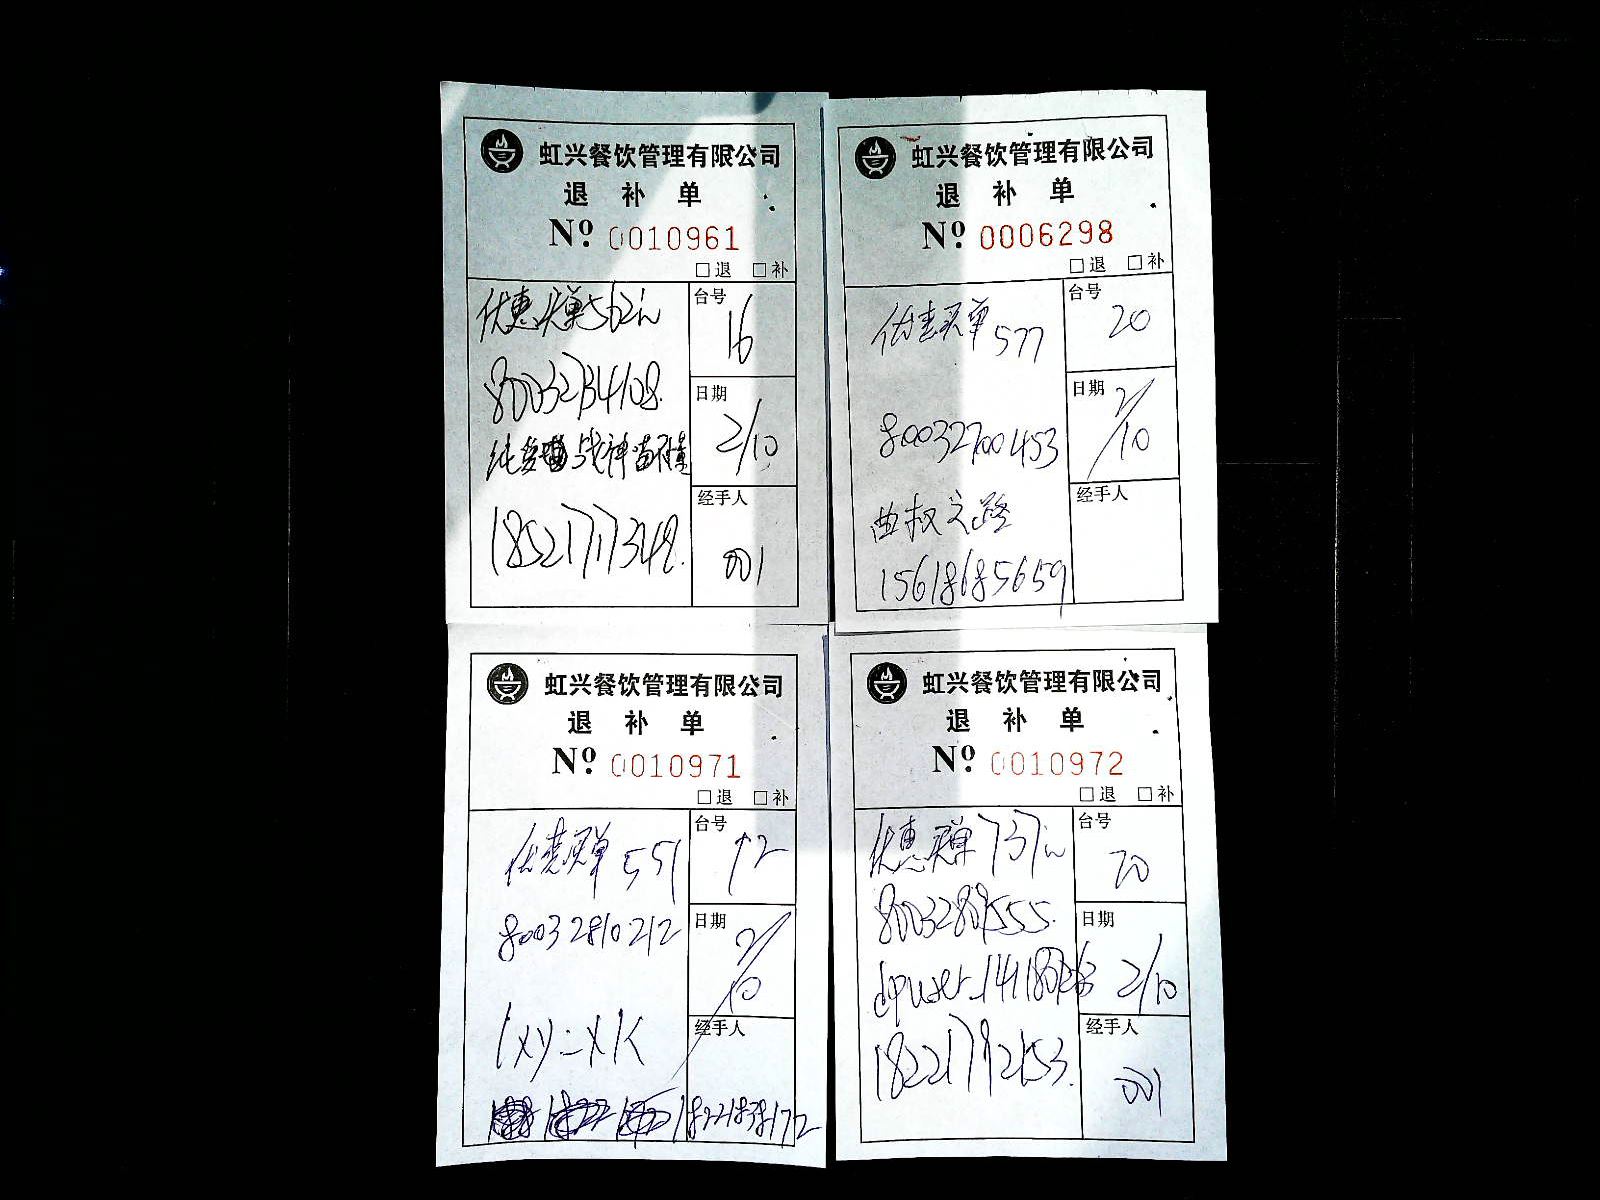 虹兴餐饮管理有限公司
退 补 单
Nº 0010961
□退 □补
优惠买单562元
台号
16
80032734108
日期
2/10
18521777348
经手人
001
虹兴餐饮管理有限公司
退 补 单
Nº 0006298
□退 □补
优惠买单 577
台号
20
80032700453
日期
2/10
15618685659
经手人
虹兴餐饮管理有限公司
退 补 单
Nº 0010971
□退 □补
优惠买单 551
台号
12
80032810212
日期
2/10
经手人
18221838172
虹兴餐饮管理有限公司
退 补 单
Nº 0010972
□退 □补
优惠买单 737元
台号
20
80032809555
日期
2/10
18221792153
经手人
001